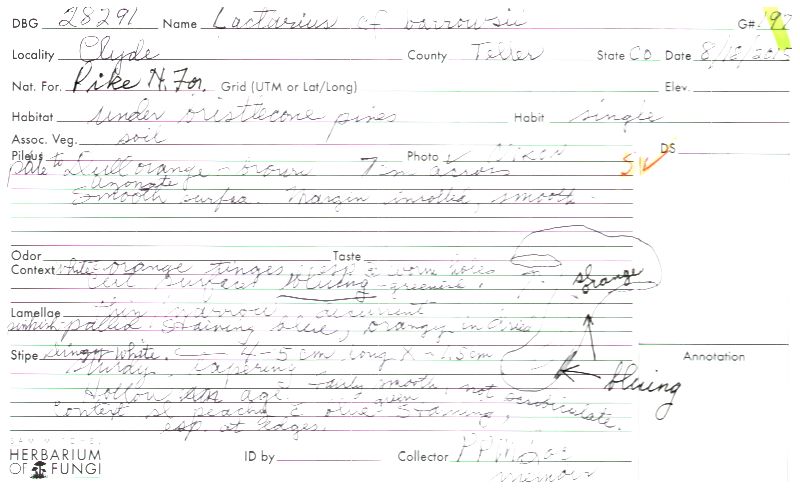 DBG 28291 Name Lactarius cf barrowsii G# 192
Locality Clyde County Teller State CO Date 8/18/2015
Nat. For. Pike N. For. Grid (UTM or Lat/Long) Elev.
Habitat under bristlecone pines Habit single
Assoc. Veg. soil
Pileus Photo Nikon DS
pale to Dull orange-brown 7 cm across SW
azonate
Smooth surface. Margin inrolled, smooth.
Odor Taste
Context white orange tinges, esp c worm holes
Cut surface bluing-greenish. orange
Lamellae thin narrow, decurrent
pinkish-pallid. Staining blue, orangy in
Stipe dingy white. 4-5 cm long X ~1.5cm Annotation
taperin bluing
Hollow in age. Fairly smooth, not scrobiculate.
even
Context sl peachy c blue staining,
esp. at edges.
SAM MITCHEL
HERBARIUM
OF FUNGI ID by Collector
member